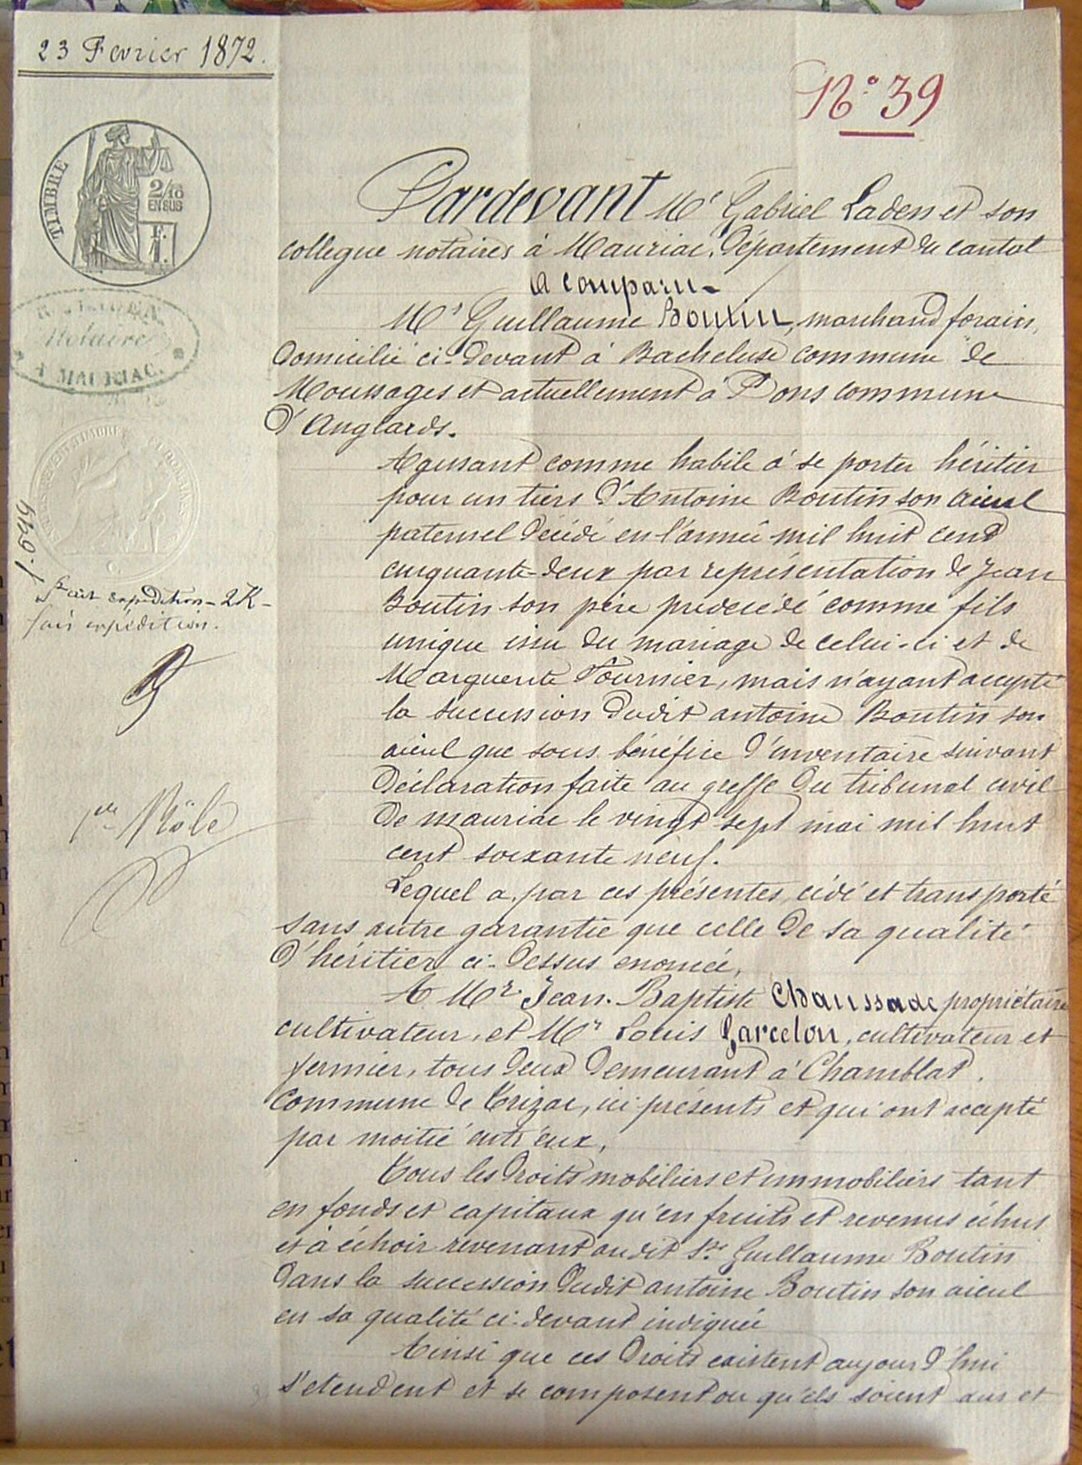 23 Fevrier 1872.
N° 39
TIMBRE
2/10
EN SUS
1 F.
Notaire
A MAURIAC.
fait expédition - 2K -
fait expédition.
1er Rôle
Pardevant Me Gabriel Laden et son
collegue notaires à Mauriac, Département du cantal
a comparu
Mr Guillaume Boutin, marchand forain,
Domicilié ci-devant à Bacheluse commune de
Moussages et actuellement à Pons commune
d'Anglards.
Agissant comme habile à se porter héritier
pour un tiers d'Antoine Boutin son aieul
paternel décédé en l'année mil huit cent
cinquante-deux par représentation de Jean
Boutin son père prédécédé comme fils
unique issu du mariage de celui-ci et de
Marguerite Fournier, mais n'ayant accepté
la succession dudit antoine Boutin son
aieul que sous bénéfice d'inventaire suivant
Déclaration faite au greffe du tribunal civil
de mauriac le vingt sept mai mil huit
cent soixante neuf.
Lequel a par ces présentes, cédé et transporté
sans autre garantie que celle de sa qualité
d'héritier ci-dessus enoncée,
A Mr Jean-Baptiste Chaussade propriétaire
cultivateur, et Mr Louis Garcelon, cultivateur et
fermier, tous deux demeurant à Chamblat,
commune de Trizac, ici présents et qui ont accepté
par moitié entr'eux,
Tous les droits mobiliers et immobiliers tant
en fonds et capitaux qu'en fruits et revenus échus
et à échoir revenant audit Sr Guillaume Boutin
dans la succession dudit antoine Boutin son aieul
en sa qualité ci-devant indiquée
Ainsi que ces droits existent aujourd'hui
s'etendent et se composent ou qu'ils soient dus et